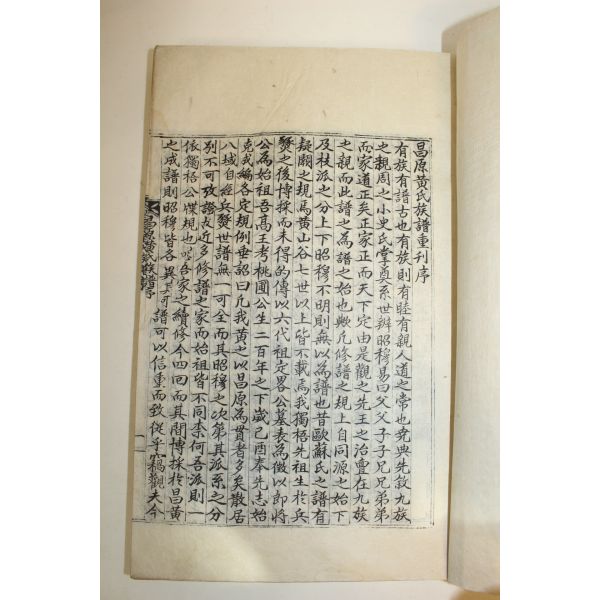 昌原黃氏族譜重刊序
有族有譜古也有族則有睦有親人道之常也堯典先敘九族
之親周之小史氏掌奠系世辨昭穆易曰父父子子兄兄弟弟
而家道正矣正家正而天下定由是觀之先王之治豊在九族
之親而此譜之為譜之始也歟凡修譜之規上自同源之始下
及枝派之分上下昭穆不明則無以為譜也昔歐蘇氏之譜有
疑闕之規焉黃山谷七世以上皆不載焉我獨梧先祖生於兵
燹之後博採而未得的傳以六代祖定畧公墓表為徵以即將
公為始祖吾高王考桃圃公生二百年之下歲己酉奉先志始
克我編各定規例垂訓曰凡我黃之以昌原為貫者多矣散居
八域自經兵燹世譜無一可全而其昭穆之次第其派系之分
別不可攷證故近多修譜之家而始祖皆不同李何吾派則一
依獨梧公牒規也 吾家之續修今四回而其間博採於昌黃
之成譜則昭穆皆各異 可譜可以信重而致從乎竊觀夫今
昌原黃氏族譜序
一